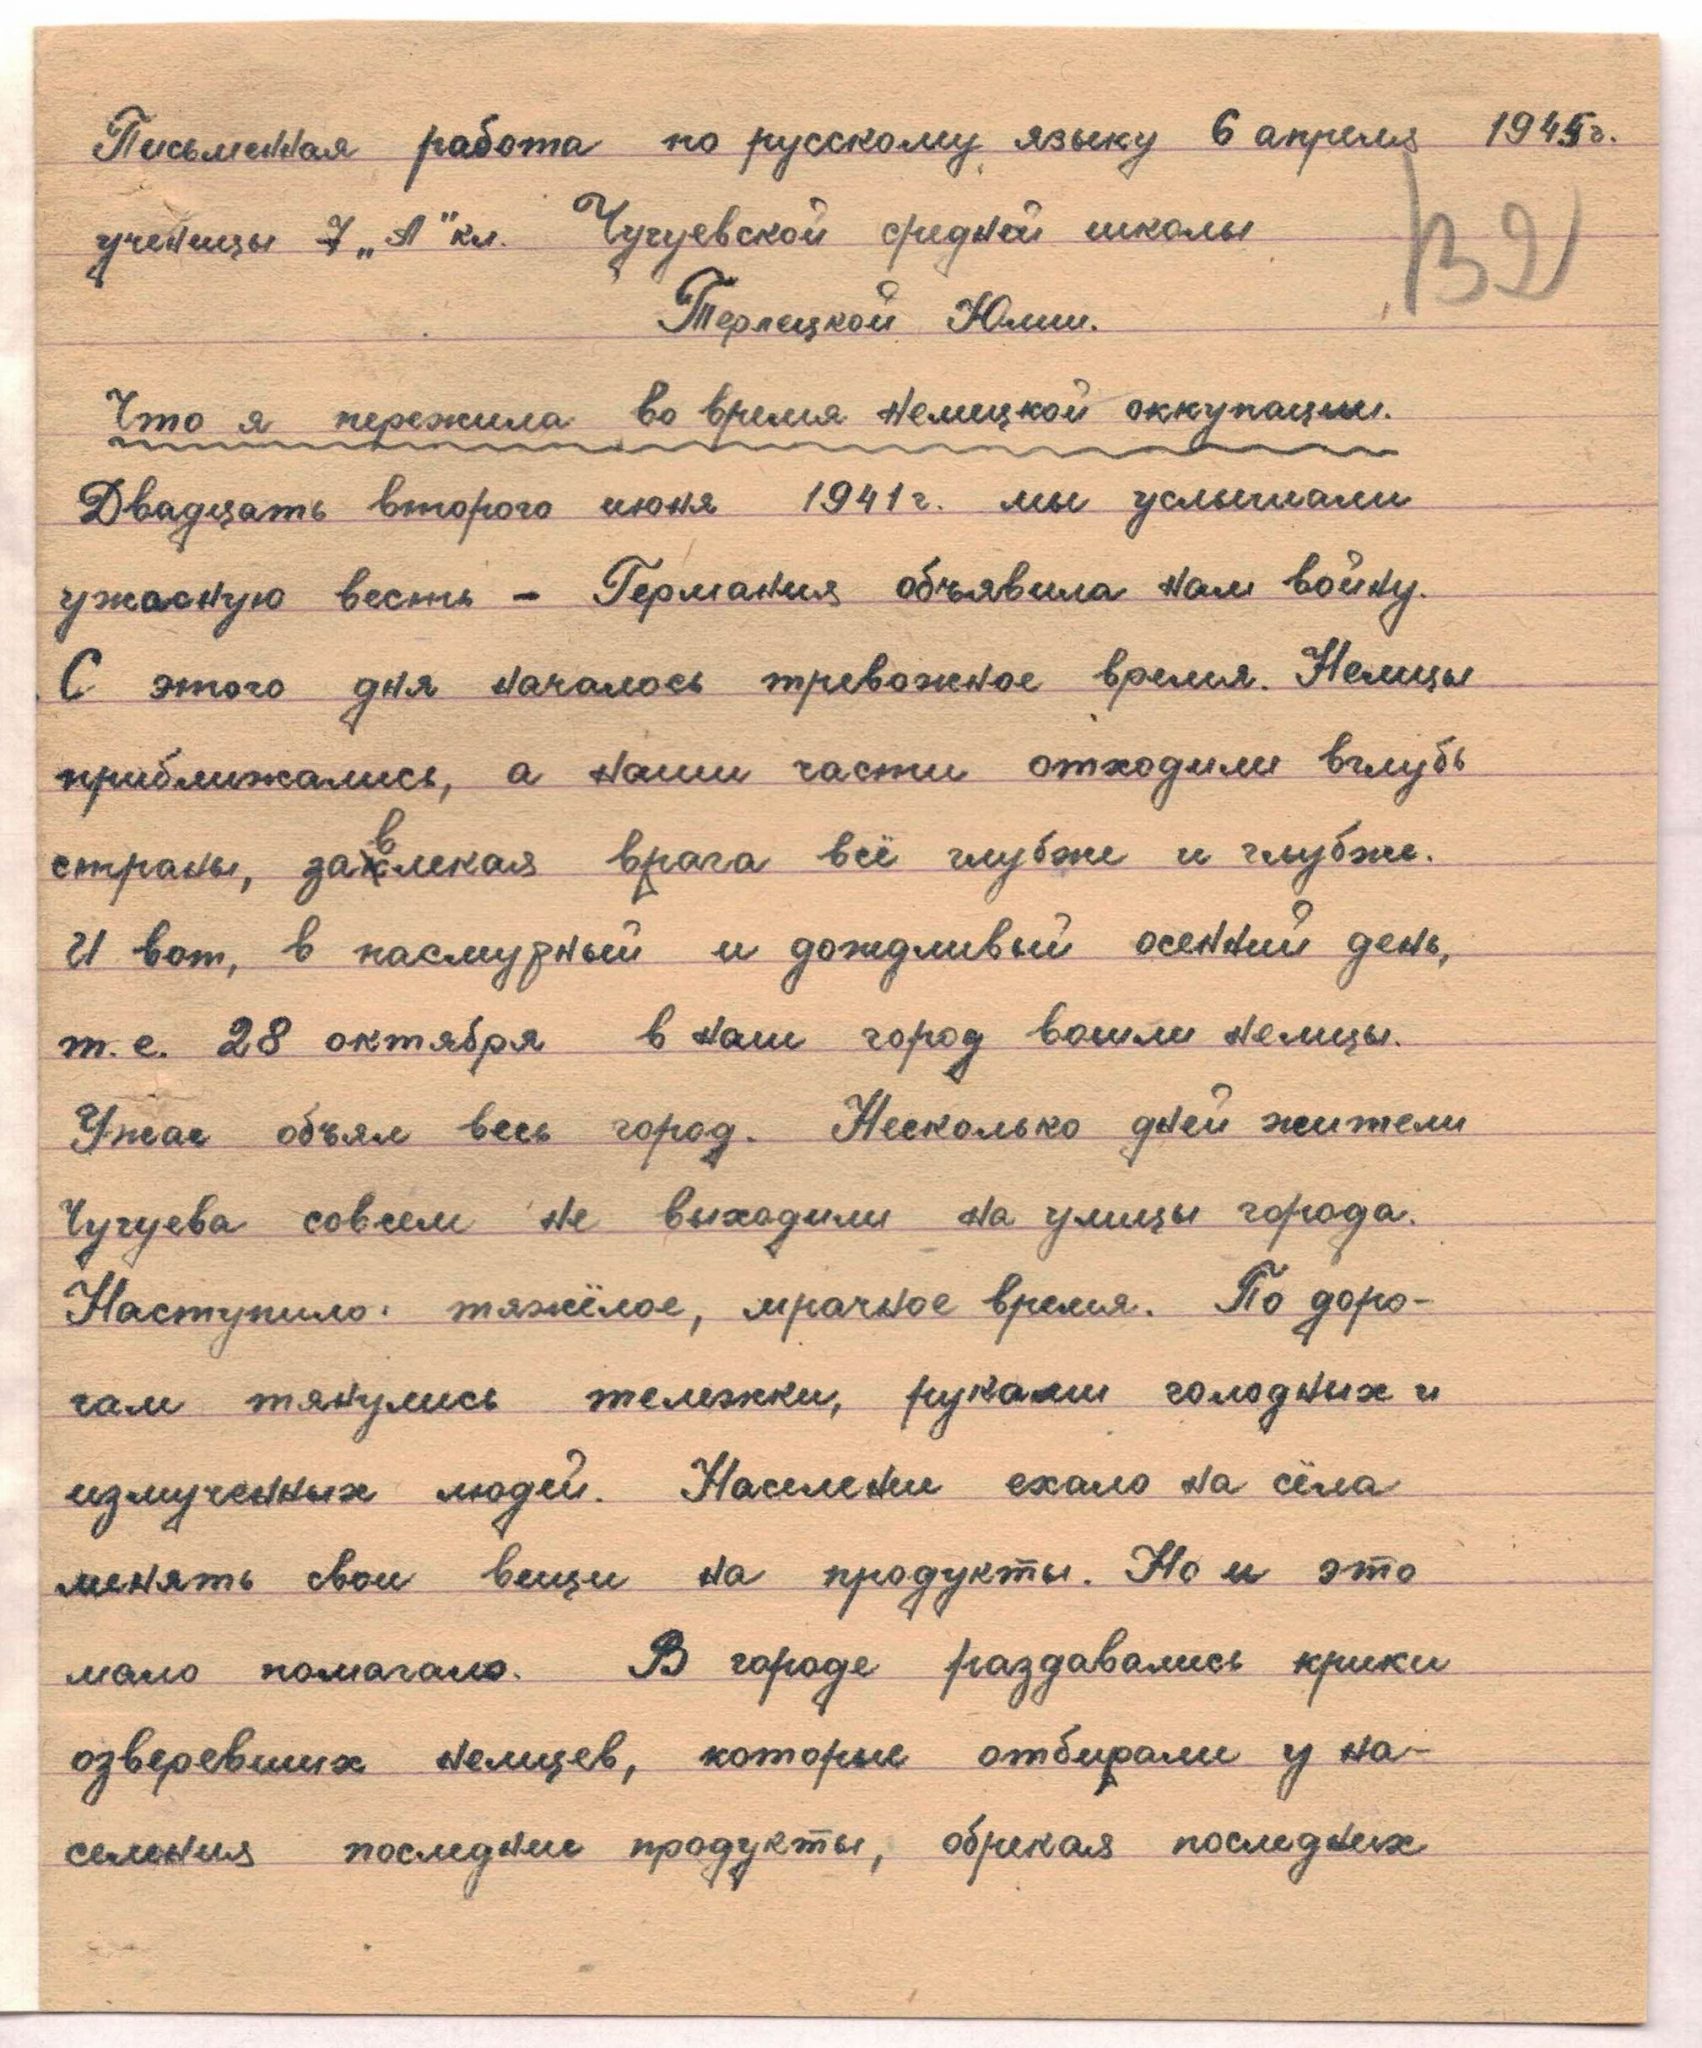 Письменная работа по русскому языку 6 апреля 1945г.
ученицы 7 „А" кл. Чугуевской средней школы
132
Терлецкой Юлии.
Что я пережила во время немецкой оккупации.
Двадцать второго июня 1941г. мы услышали
ужасную весть – Германия объявила нам войну.
С этого дня началось тревожное время. Немцы
приближались, а наши части отходили вглубь
страны, завлекая врага всё глубже и глубже.
И вот, в пасмурный и дождливый осенний день,
т.е. 28 октября в наш город вошли немцы.
Ужас объял весь город. Несколько дней жители
Чугуева совсем не выходили на улицы города.
Наступило тяжёлое, мрачное время. По доро-
гам тянулись тележки, руками голодных и
измученных людей. Населени ехало на сёла
менять свои вещи на продукты. Но и это
мало помагало. В городе раздавались крики
озверевших немцев, которые отбирали у на-
селения последние продукты, обрекая последних